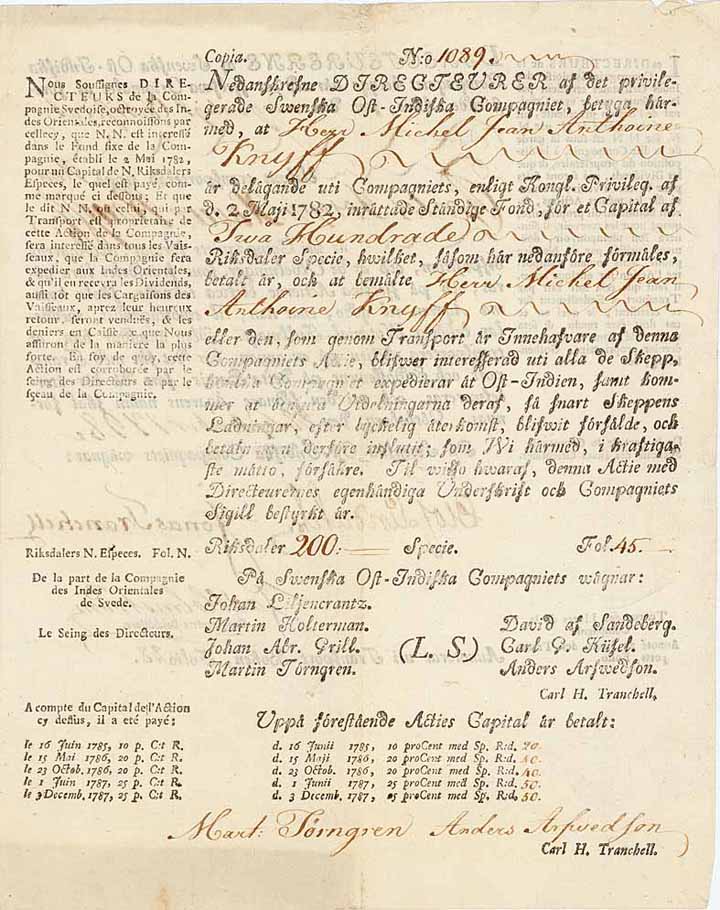 Copia. N:o 1089.
Nous Soussignes DIRE-
CTEURS de la Com-
pagnie Svedoise, octroyée des In-
des Orientales, reconnoissons par
celle cy, que N. N. est interessé
dans le Fund fixe de la Com-
pagnie, établi le 2 Mai 1782,
pour un Capital de N. Riksdalers
Especes, le quel est payé, com-
me marqué ci dessous; Et que
le dit N. N. ou celui, qui par
Transport est proprietaire de
cette Action de la Compagnie,
sera interessé dans tous les Vais-
seaux, que la Compagnie sera
expedier aux Indes Orientales,
& qu'il en recevra les Dividends,
aussi tôt que les Cargaisons des
Vaisseaux, aprez leur heureux
retour, seront vendues, & les
deniers en Caisse ce que Nous
assurons de la maniere la plus
forte. En foy de quoy, cette
Action est corroborée par le
seing des Directeurs & par le
sçeau de la Compagnie.
Nedanskrefne DIRECTEURER af det privile-
gerade Swenska Ost-Indiska Compagniet, betyga här-
med, at Herr Michel Jean Anthoine
Knyff
är delägande uti Compagniets, enligt Kongl. Privileg. af
d. 2 Maji 1782, inrättade Ständige Fond, för et Capital af
Två Hundrade
Riksdaler Specie, hwilket, såsom här nedanföre förmäles,
betalt är, och at bemälte Herr Michel Jean
Anthoine Knyff
eller den, som genom Transport är Innehafvare af denna
Compagniets Actie, blifwer interesserad uti alla de Skepp,
hwilka Compagniet expedierar åt Ost-Indien, samt kom-
mer at åtnjuta Utdelningarna deraf, så snart Skeppens
Ladningar, efter lyckelig återkomst, blifwit försålde, och
betalningen derföre influtit; som Wi härmed, i kraftiga-
ste måtto, försäkre. Til wisso hwaraf, denna Actie med
Directeurernes egenhändiga Underskrift och Compagniets
Sigill bestyrkt är.
Riksdalers N. Especes. Fol. N.
Riksdaler 200: Specie. Fol. 45.
De la part de la Compagnie
des Indes Orientales
de Svede.
Le Seing des Directeurs.
På Swenska Ost-Indiska Compagniets wägnar:
Johan Liljencrantz.
Martin Holterman. David af Sandeberg.
Johan Abr. Grill. (L. S.) Carl G. Küsel.
Martin Törngren. Anders Arfwedson.
Carl H. Tranchell.
A compte du Capital de l'Action
cy dessus, il a eté payé:
le 16 Juin 1785, 10 p. C:t R.
le 15 Mai 1786, 20 p. C:t R.
le 23 Octob. 1786, 20 p. C:t R.
le 1 Juin 1787, 25 p. C:t R.
le 3 Decemb. 1787, 25 p. C:t R.
Uppå förestående Acties Capital är betalt:
d. 16 Junii 1785, 10 proCent med Sp. R:d. 20.
d. 15 Maji 1786, 20 proCent med Sp. R:d. 40.
d. 23 Octob. 1786, 20 proCent med Sp. R:d. 40.
d. 1 Junii 1787, 25 proCent med Sp. R:d. 50.
d. 3 Decemb. 1787, 25 proCent med Sp. R:d. 50.
Mart: Törngren Anders Arfwedson
Carl H. Tranchell.